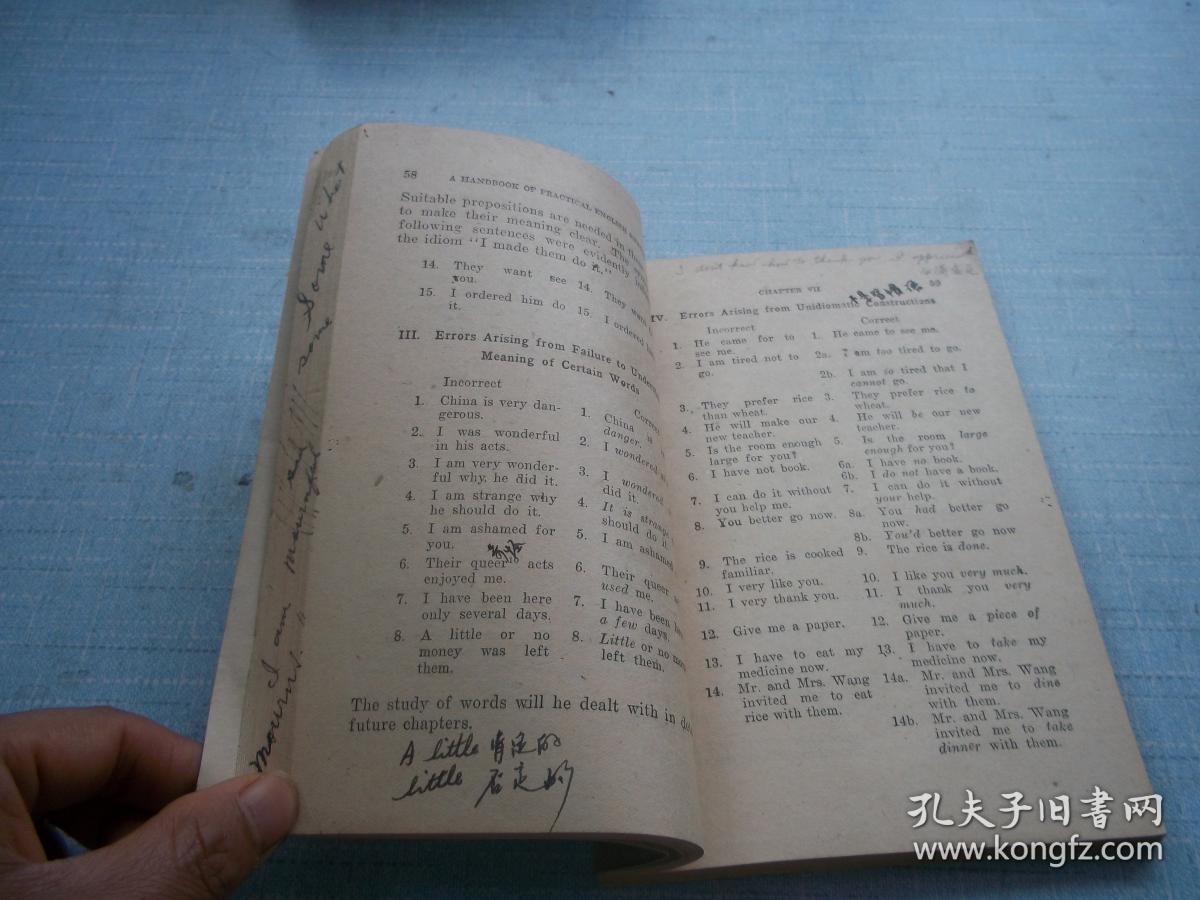 58 A HANDBOOK OF PRACTICAL ENGLISH
Suitable prepositions are needed in
to make their meaning clear. The
following sentences were evidently
the idiom "I made them do it."
14. They want see you.
14. They
15. I ordered him do it.
15. I ordered
III. Errors Arising from Failure to
Meaning of Certain Words
Incorrect
1. China is very dan-
gerous.
2. I was wonderful
in his acts.
3. I am very wonder-
ful why, he did it.
4. I am strange why
he should do it.
5. I am ashamed for
you.
6. Their queer acts
enjoyed me.
7. I have been here
only several days.
8. A little or no
money was left
them.
1. China is
danger.
2. I wondered
3. I wondered
did it.
4. It is strange
should do it.
5. I am ashamed
6. Their queer
used me.
7. I have been
a few days.
8. Little or no
left them.
The study of words will he dealt with in
future chapters.
A little 肯定的
little 否定的
mourns. I am mournful some somewhat
I don't know how to thank you I
CHAPTER VII 59
IV. Errors Arising from Unidiomatic Constructions
Incorrect
1. He came for to
see me.
2. I am tired not to
go.
3. They prefer rice
than wheat.
4. He will make our
new teacher.
5. Is the room enough
large for you?
6. I have not book.
7. I can do it without
you help me.
8. You better go now.
9. The rice is cooked
familiar.
10. I very like you.
11. I very thank you.
12. Give me a paper.
13. I have to eat my
medicine now.
14. Mr. and Mrs. Wang
invited me to eat
rice with them.
Correct
1. He came to see me.
2a. I am too tired to go.
2b. I am so tired that I
cannot go.
3. They prefer rice to
wheat.
4. He will be our new
teacher.
5. Is the room large
enough for you?
6a. I have no book.
6b. I do not have a book.
7. I can do it without
your help.
8a. You had better go
now.
8b. You'd better go now
9. The rice is done.
10. I like you very much.
11. I thank you very
much.
12. Give me a piece of
paper.
13. I have to take my
medicine now.
14a. Mr. and Mrs. Wang
invited me to dine
with them.
14b. Mr. and Mrs. Wang
invited me to take
dinner with them.
孔夫子旧书网
www.kongfz.com